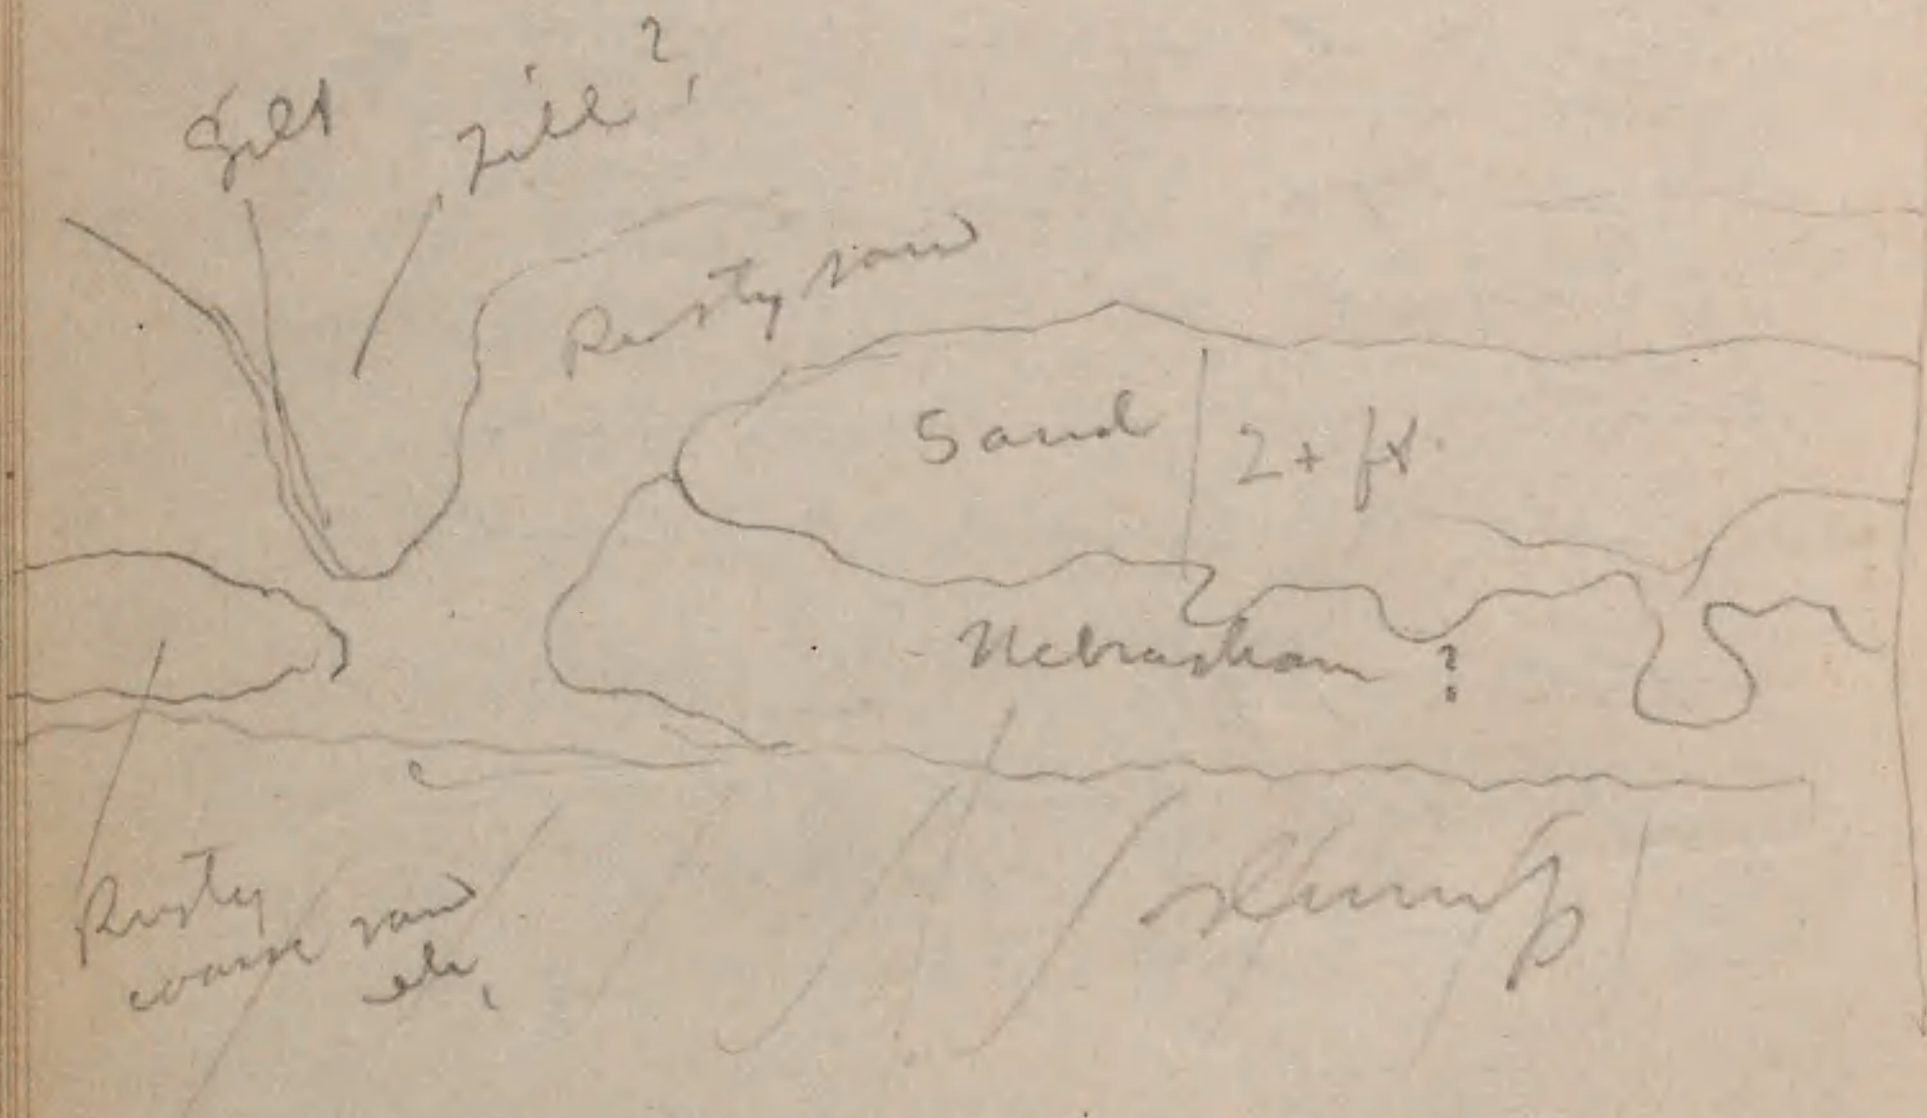 Silt
Till?
Rusty sand
Sand 2+ ft.
Nebraskan ?
Rusty
coarse sand
etc.
Slump